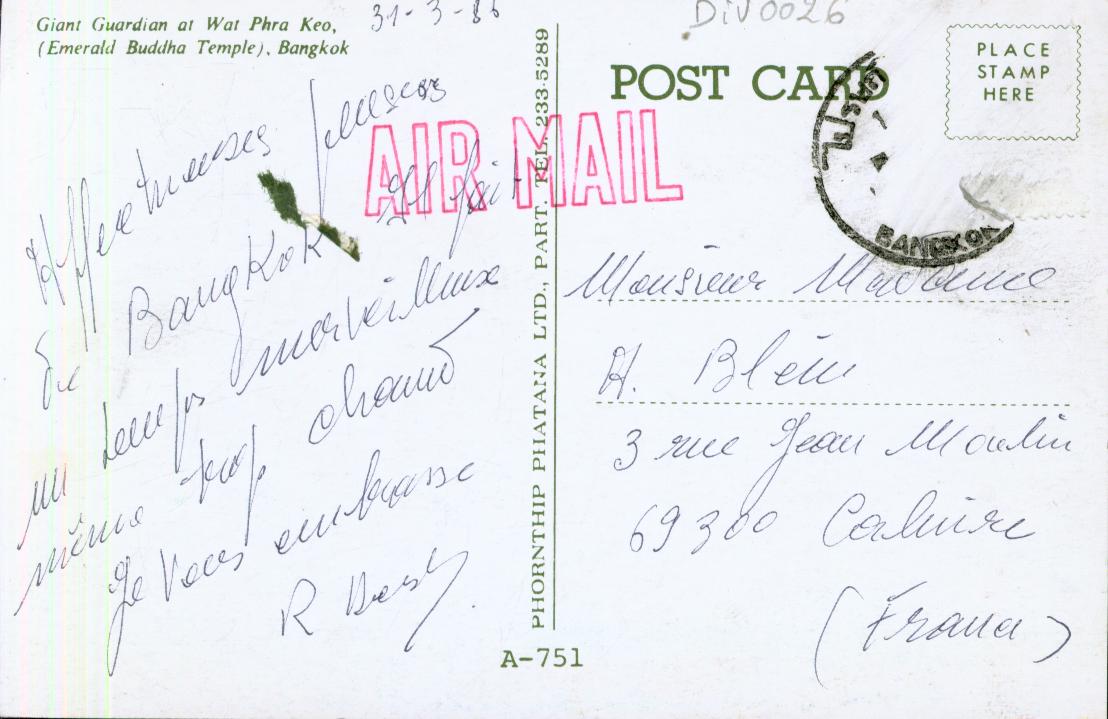 Giant Guardian at Wat Phra Keo,
(Emerald Buddha Temple), Bangkok
31-3-86
Affectueuses pensées
de Bangkok Il fait
un temps merveilleux
même trop chaud
Je vous embrasse
R
PHORNTHIP PHATANA LTD., PART. TEL. 233-5289
A-751
DIV0026
POST CARD
AIR MAIL
PLACE
STAMP
HERE
BANGKOK
Monsieur Madame
H. Blein
3 rue Jean Moulin
69300 Caluire
(France)